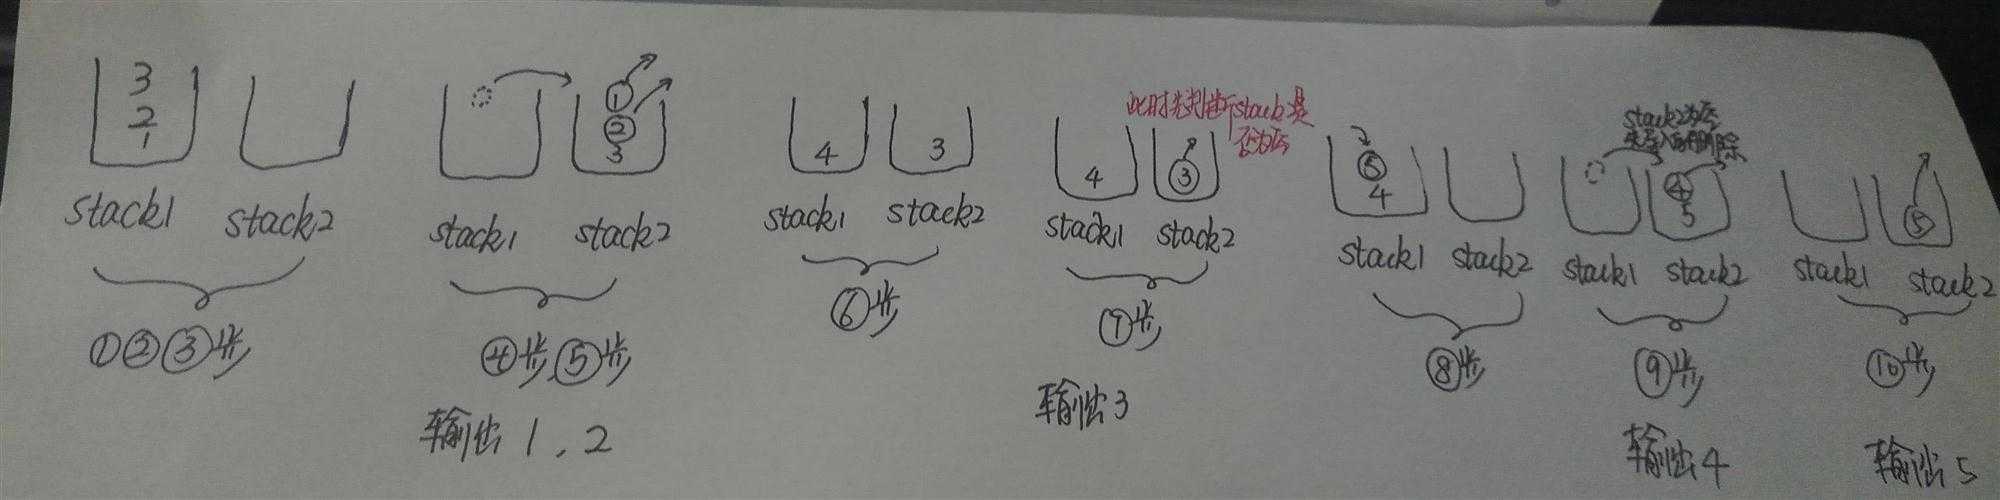 3
2
1
stack1 stack2
①②③步
①
②
3
stack1 stack2
④步⑤步
输出 1, 2
4 3
stack1 stack2
⑥步
此时先判断stack2是
否为空
4 ③
stack1 stack2
⑦步
输出 3
⑤
4
stack1 stack2
⑧步
stack2为空
先导入再删除
④
5
stack1 stack2
⑨步
输出 4
⑤
stack1 stack2
⑩步
输出 5